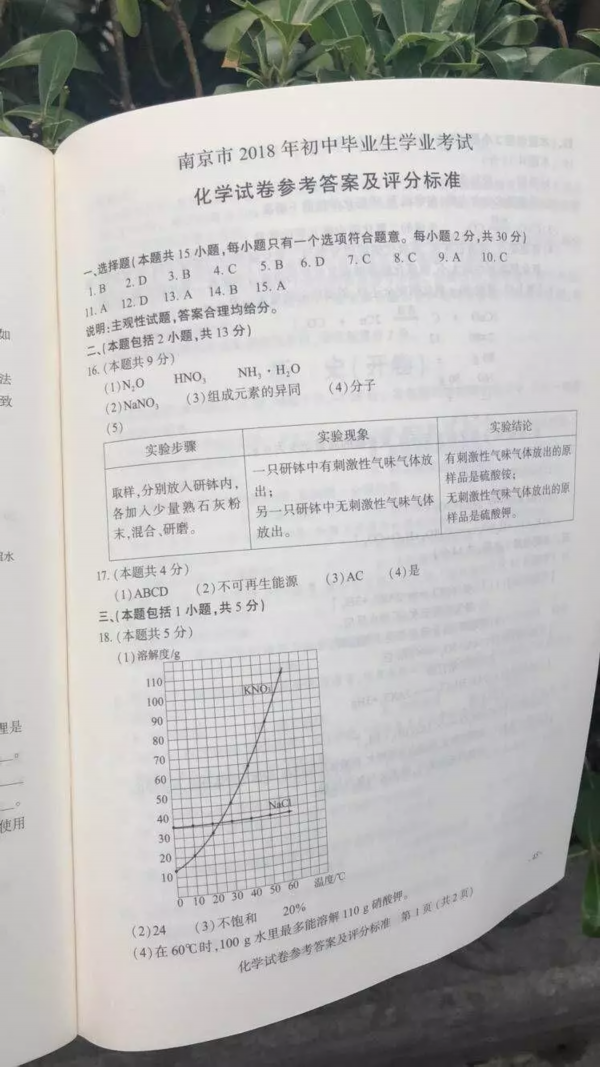 南京市2018年初中毕业生学业考试
化学试卷参考答案及评分标准
一、选择题(本题共15小题,每小题只有一个选项符合题意。每小题2分,共30分)
1.B 2.D 3.B 4.C 5.B 6.D 7.C 8.C 9.A 10.C
11.A 12.D 13.A 14.B 15.A
说明:主观性试题,答案合理均给分。
二、(本题包括2小题,共13分)
16.(本题共9分)
(1)N₂O HNO₃ NH₃·H₂O
(2)NaNO₃ (3)组成元素的异同 (4)分子
(5)
实验步骤 实验现象 实验结论
取样,分别放入研钵内,
各加入少量熟石灰粉
末,混合、研磨。
一只研钵中有刺激性气味气体放
出;
另一只研钵中无刺激性气味气体
放出。
有刺激性气味气体放出的原
样品是硫酸铵;
无刺激性气味气体放出的原
样品是硫酸钾。
17.(本题共4分)
(1)ABCD (2)不可再生能源 (3)AC (4)是
三、(本题包括1小题,共5分)
18.(本题共5分)
(1)溶解度/g
110
100
90
80
70
60
50
40
30
20
10
KNO₃
NaCl
0 10 20 30 40 50 60 温度/℃
(2)24 (3)不饱和 20%
(4)在60℃时,100 g水里最多能溶解110 g硝酸钾。
化学试卷参考答案及评分标准 第1页(共2页)
如
法
致
水
理是
使用